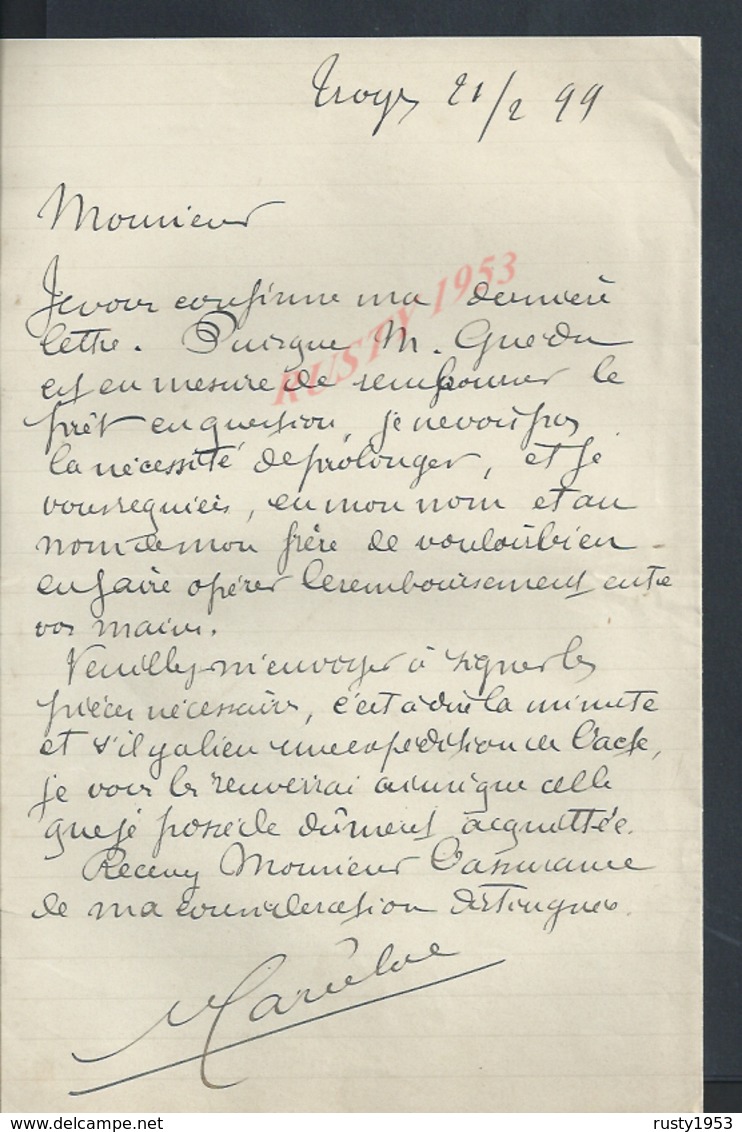 Troyes 21/2 99
Monsieur
Je vous confirme ma dernière
lettre. Puisque M. Guedu
est en mesure de rembourser le
prêt en question, je ne vois pas
la nécessité de prolonger, et je
vous requiers, en mon nom et au
nom de mon frère de vouloir bien
en faire opérer le remboursement entre
vos mains.
Veuillez m'envoyer à signer les
pièces nécessaires, c'est à dire la minute
et s'il y a lieu une expédition de l'acte,
je vous les renverrai ainsi que celle
que je possède dûment acquittée.
Recevez Monsieur l'assurance
de ma considération distinguée.
RUSTY 1953
delcampe.net
rusty1953